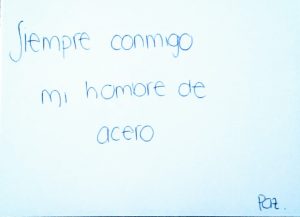 Siempre conmigo
mi hombre de
acero
Paz.